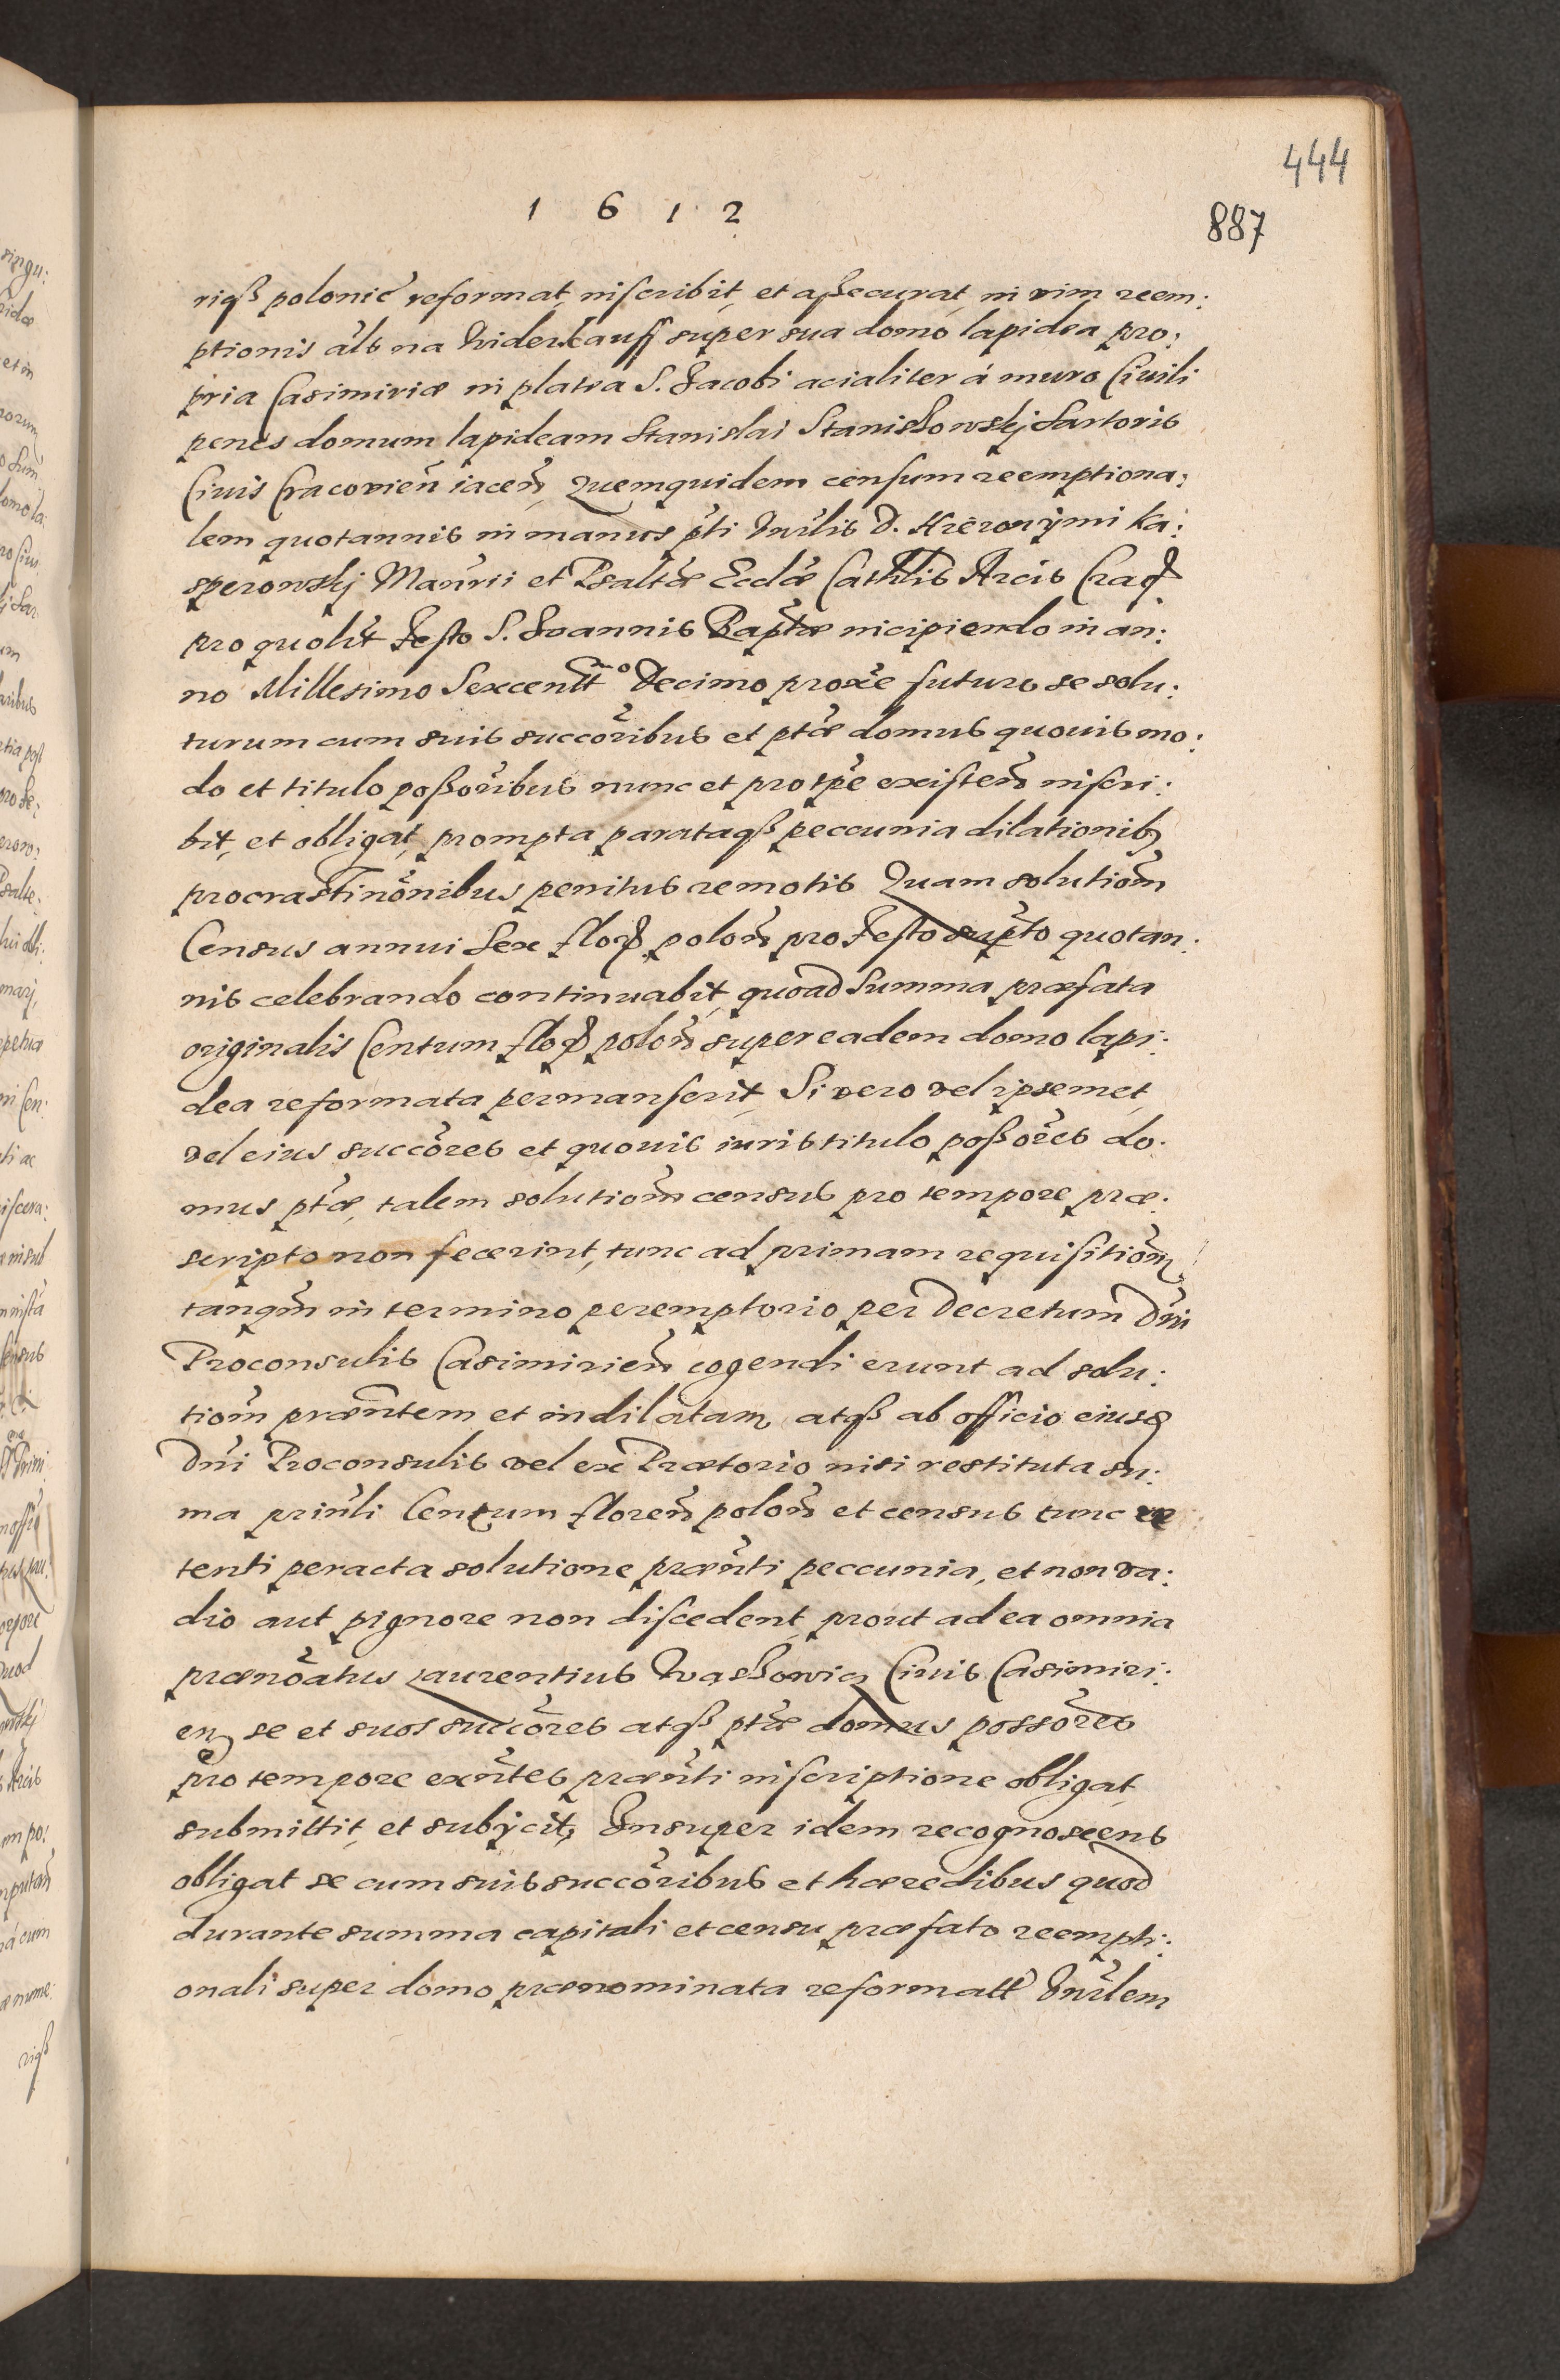 444
1 6 1 2
887
riqß polonic̃ reformat, inscribit, et aßecurat, in vim reem:
ptionis al̃s na widerkauff super sua domo lapidea pro:
pria Casimiriæ in platea S. Jacobi acialiter á muro Ciuili
penes domum lapideam Stanislai Staniskowskj Sartoris
Ciuis Cracovien̄ iacen̄, Quemquidem censum reemptiona:
lem quotannis in manus p̃ti Dnĩlis D. Hieronÿmi Ka:
sperowskj Mansrii et Psaltæ Eccl̃æ Cathl̃is Arcis Craqꝫ
pro quolit Festo S. Joannis Bap̃tæ incipiendo in an:
no Millesimo Sexcentt̃o Decimo prox̃e futuro se solu:
turum cum suis succõribus et p̃tæ domus quouis mo:
do et titulo poßõribus nunc et pro tp̃e existen̄ inscri:
bit, et obligat, prompta parataqß peccunia dilationibꝫ
procrastinõnibus penitus remotis Quam solutiom̃
Census annui Sex floꝝ polon̄ pro Festo sup̃to quotan:
nis celebrando continuabit, quoad Summa præfata
originalis Centum floꝝ polon̄ super eadem domo lapi:
dea reformata permanserit, Si vero vel ipsemet,
vel eius succõres et quouis iuris titulo poßõres do:
mus p̃tæ, talem solutiom̃ census pro tempore præ:
scripto non fecerint, tunc ad primam requisitiom̃,
tanqm̃ in termino peremptorio per Decretum Dñi
Proconsulis Casimirien̄ cogendi erunt ad solu:
tiom̃ præñtem et indilatam, atqß ab officio eiusdꝫ
Dñi Proconsulis vel ex Prætorio nisi restituta su:
ma prinl̃i Centum floren̄ polon̄ et census tunc re
tenti peracta solutione præñti peccunia, et non va:
dio aut pignore non discedent, prout ad ea omnia
prænõatus Laurentius Waskowicz Ciuis Casimiri:
enꝫ se et suos succõres atqß p̃tæ domus possõres
pro tempore exñtes præñti inscriptione obligat,
submittit, et subÿcit, Insuper idem recognoscens
obligat se cum suis succõribus et hæredibus quod
durante summa capitali et censu præfato reempti:
onali super domo prænominata reformatt̃ Dnĩlem